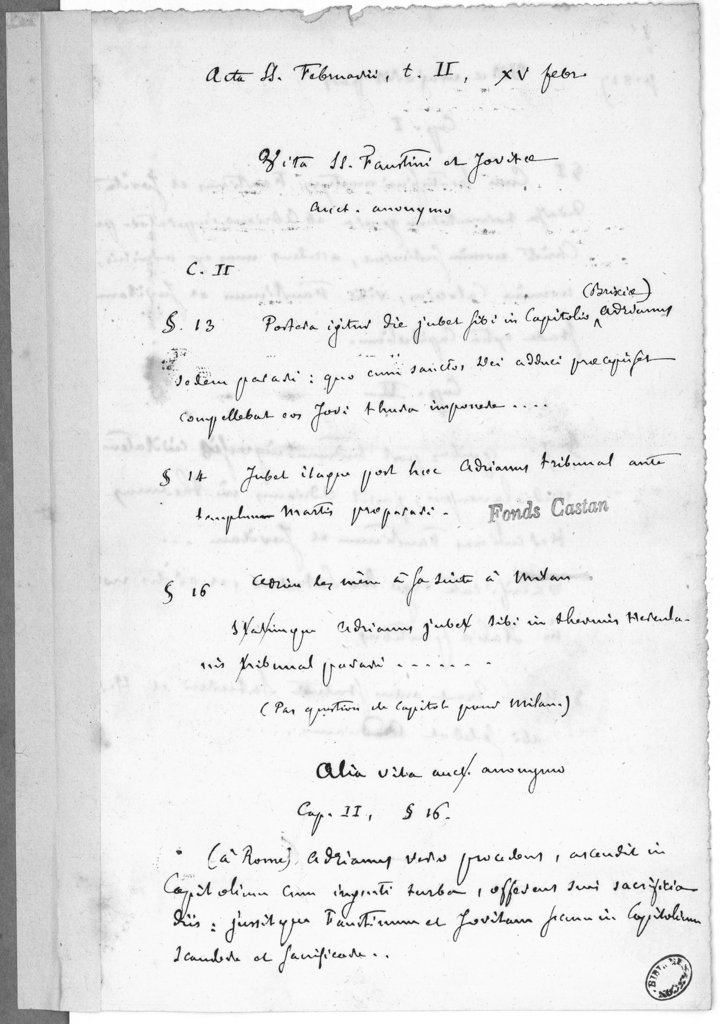 Acta SS. Februarii, t. II, XV febr.
Vita SS. Faustini et Jovitæ
auct. anonymo
C. II
(Brixiæ)
§. 13 Postera igitur die jubet sibi in Capitolio Adrianus
sedem parari : quo cum sanctos Dei adduci præcepisset
compellebat eos Jovi thura imponere ....
§ 14 Jubet itaque post hæc Adrianus tribunal ante
templum Martis præparari.
Fonds Castan
§ 16 Adrien les mène à sa suite à Milan
Statimque Adrianus jubet sibi in thermis Hercula-
neis tribunal parari .......
(Pas question de Capitole pour Milan.)
Alia vita auct. anonymo
Cap. II, § 16.
(à Rome) Adrianus vero procedens, ascendit in
Capitolium cum ingenti turba, offerens sua sacrificia
diis : jussitque Faustinum et Jovitam secum in Capitolium
scandere et sacrificare..